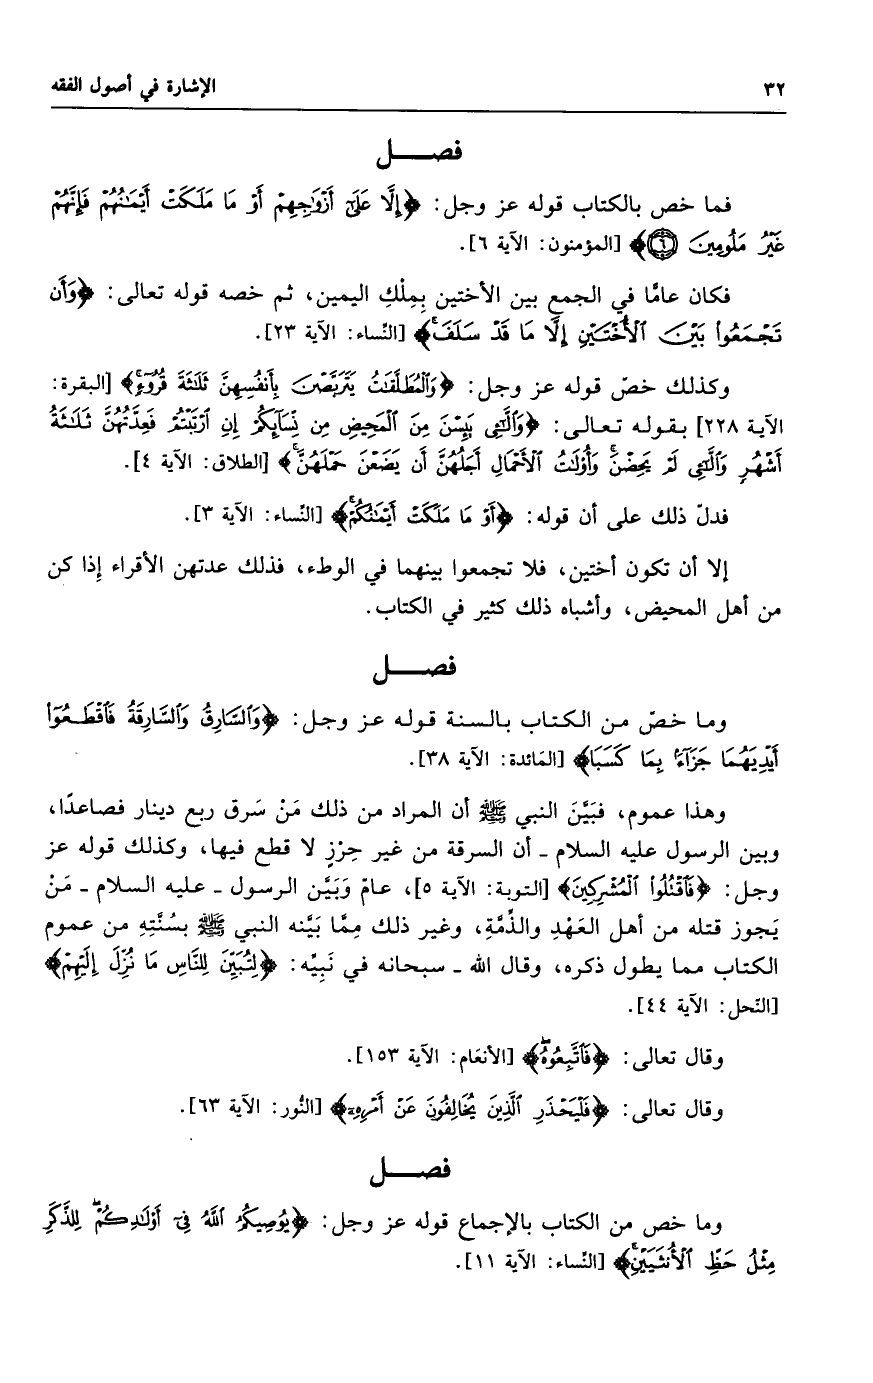 ٣٢ الإشارة في أصول الفقه
فصـــل
فما خص بالكتاب قوله عز وجل: ﴿إِلَّا عَلَىٰٓ أَزْوَٰجِهِمْ أَوْ مَا مَلَكَتْ أَيْمَٰنُهُمْ فَإِنَّهُمْ
غَيْرُ مَلُومِينَ ٦﴾ [المؤمنون: الآية ٦].
فكان عامًّا في الجمع بين الأختين بِمِلْكِ اليمين، ثم خصه قوله تعالى: ﴿وَأَن
تَجْمَعُوا۟ بَيْنَ ٱلْأُخْتَيْنِ إِلَّا مَا قَدْ سَلَفَ ۚ﴾ [النّساء: الآية ٢٣].
وكذلك خصّ قوله عز وجل: ﴿وَٱلْمُطَلَّقَٰتُ يَتَرَبَّصْنَ بِأَنفُسِهِنَّ ثَلَٰثَةَ قُرُوٓءٍ ۚ﴾ [البقرة:
الآية ٢٢٨] بقوله تعالى: ﴿وَٱلَّٰٓـِٔى يَئِسْنَ مِنَ ٱلْمَحِيضِ مِن نِّسَآئِكُمْ إِنِ ٱرْتَبْتُمْ فَعِدَّتُهُنَّ ثَلَٰثَةُ
أَشْهُرٍ وَٱلَّٰٓـِٔى لَمْ يَحِضْنَ ۚ وَأُو۟لَٰتُ ٱلْأَحْمَالِ أَجَلُهُنَّ أَن يَضَعْنَ حَمْلَهُنَّ ۚ﴾ [الطلاق: الآية ٤].
فدلّ ذلك على أن قوله: ﴿أَوْ مَا مَلَكَتْ أَيْمَٰنُكُمْ ۚ﴾ [النّساء: الآية ٣].
إلا أن تكون أختين، فلا تجمعوا بينهما في الوطء، فذلك عدتهن الأقراء إذا كن
من أهل المحيض، وأشباه ذلك كثير في الكتاب.
فصـــل
وما خصّ من الكتاب بالسنة قوله عز وجل: ﴿وَٱلسَّارِقُ وَٱلسَّارِقَةُ فَٱقْطَعُوٓا۟
أَيْدِيَهُمَا جَزَآءًۢ بِمَا كَسَبَا﴾ [المَائدة: الآية ٣٨].
وهذا عموم، فبَيَّنَ النبي ﷺ أن المراد من ذلك مَنْ سَرق ربع دينار فصاعدًا،
وبين الرسول عليه السلام - أن السرقة من غير حِرْزٍ لا قطع فيها، وكذلك قوله عز
وجل: ﴿فَٱقْتُلُوا۟ ٱلْمُشْرِكِينَ﴾ [التوبة: الآية ٥]، عامّ وَبَيَّن الرسول - عليه السلام - مَنْ
يَجوز قتله من أهل العَهْدِ والذِّمَّةِ، وغير ذلك مِمَّا بَيَّنه النبي ﷺ بسُنَّتِهِ من عموم
الكتاب مما يطول ذكره، وقال الله - سبحانه في نَبِيِّه: ﴿لِتُبَيِّنَ لِلنَّاسِ مَا نُزِّلَ إِلَيْهِمْ﴾
[النّحل: الآية ٤٤].
وقال تعالى: ﴿فَٱتَّبِعُوهُ ۖ﴾ [الأنعَام: الآية ١٥٣].
وقال تعالى: ﴿فَلْيَحْذَرِ ٱلَّذِينَ يُخَالِفُونَ عَنْ أَمْرِهِۦٓ﴾ [النُّور: الآية ٦٣].
فصـــل
وما خص من الكتاب بالإجماع قوله عز وجل: ﴿يُوصِيكُمُ ٱللَّهُ فِىٓ أَوْلَٰدِكُمْ ۖ لِلذَّكَرِ
مِثْلُ حَظِّ ٱلْأُنثَيَيْنِ ۚ﴾ [النّساء: الآية ١١].